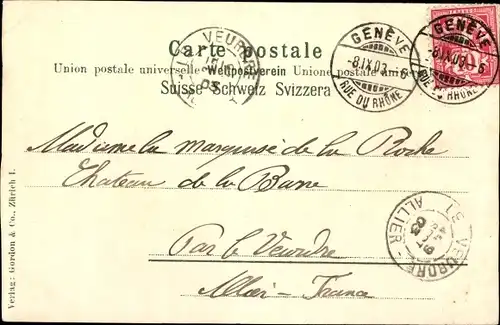 Carte postale
Union postale universelle - Weltpostverein Unione postale univers
Suisse Schweiz Svizzera
GENÈVE
-8.IX.03.-6
RUE DU RHÔNE
GENÈVE
-8.IX.03.-6
RUE DU RHÔNE
VEURDRE
03
Madame la marquise de la Roche
Chateau de la Barre
Par le Veurdre
Allier - France
LE VEURDRE
03
ALLIER
Verlag: Gordon & Co., Zürich I.